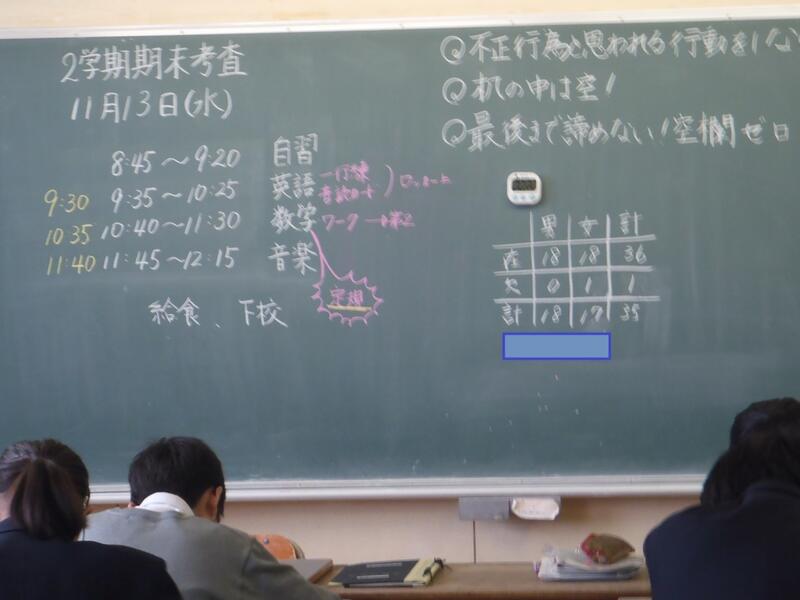 2学期期末考査
11月13日(水)
8:45〜9:20 自習
9:30 9:35〜10:25 英語
10 35 10:40〜11:30 数学 ワーク
11:40 11:45〜12:15 音楽
給食、下校
◎不正行為と思われる行動をしな
◎机の中は空!
◎最後まで諦めない!空欄ゼロ
男 女 計
在 18 18 36
欠 0 1 1
計 18 17 35